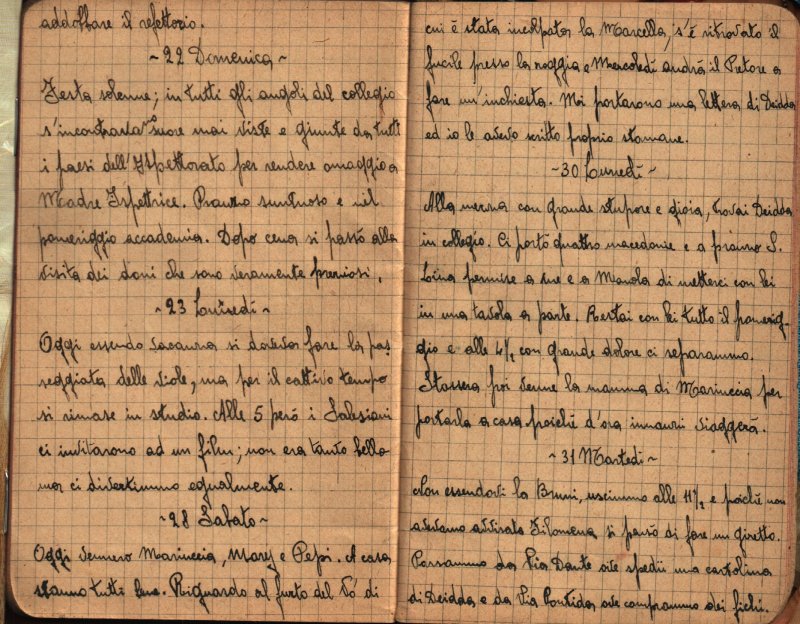 addobbare il refettorio.
~ 22 Domenica ~
Festa solenne; in tutti gli angoli del collegio
s'incontravano suore mai viste e giunte da tutti
i paesi dell'Ispettorato per rendere omaggio a
Madre Ispettrice. Pranzo suntuoso e nel
pomeriggio accademia. Dopo cena si passò alla
visita dei doni che sono veramente preziosi.
~ 23 Lunedì ~
Oggi essendo vacanza si doveva fare la pas
seggiata delle viole, ma per il cattivo tempo
si rimase in studio. Alle 5 però i Salesiani
ci invitarono ad un film; non era tanto bello
ma ci divertimmo egualmente.
~ 28 Sabato ~
Oggi vennero Marinccia, Marj e Pepi. A casa
stanno tutti bene. Riguardo al furto del Pó di
cui è stata incolpata la Marcella, s'è ritrovato il
fucile presso la roggia e Mercoledì andrà il Pretore a
fare un'inchiesta. Mi portarono una lettera di Deidda
ed io le avevo scritto proprio stamane.
~ 30 Lunedì ~
Alla messa con grande stupore e gioia, trovai Deidda
in collegio. Ci portò quattro macedonie e a pranzo S.
permise a me e a Manola di metterci con lei
in una tavola a parte. Restai con lei tutto il pomerig-
gio e alle 4½ con grande dolore ci separammo.
Stassera poi venne la mamma di Marinccia per
portarla a casa poichè d'ora innanzi viaggerà.
~ 31 Martedì ~
Non essendovi la Bruni, uscimmo alle 11½ e poichè non
avevamo avvisato Filomena si pensò di fare un giretto.
Passammo da Via Dante ove spedii una cartolina
di Deidda e da Via Pontida ove comprammo dei fichi.